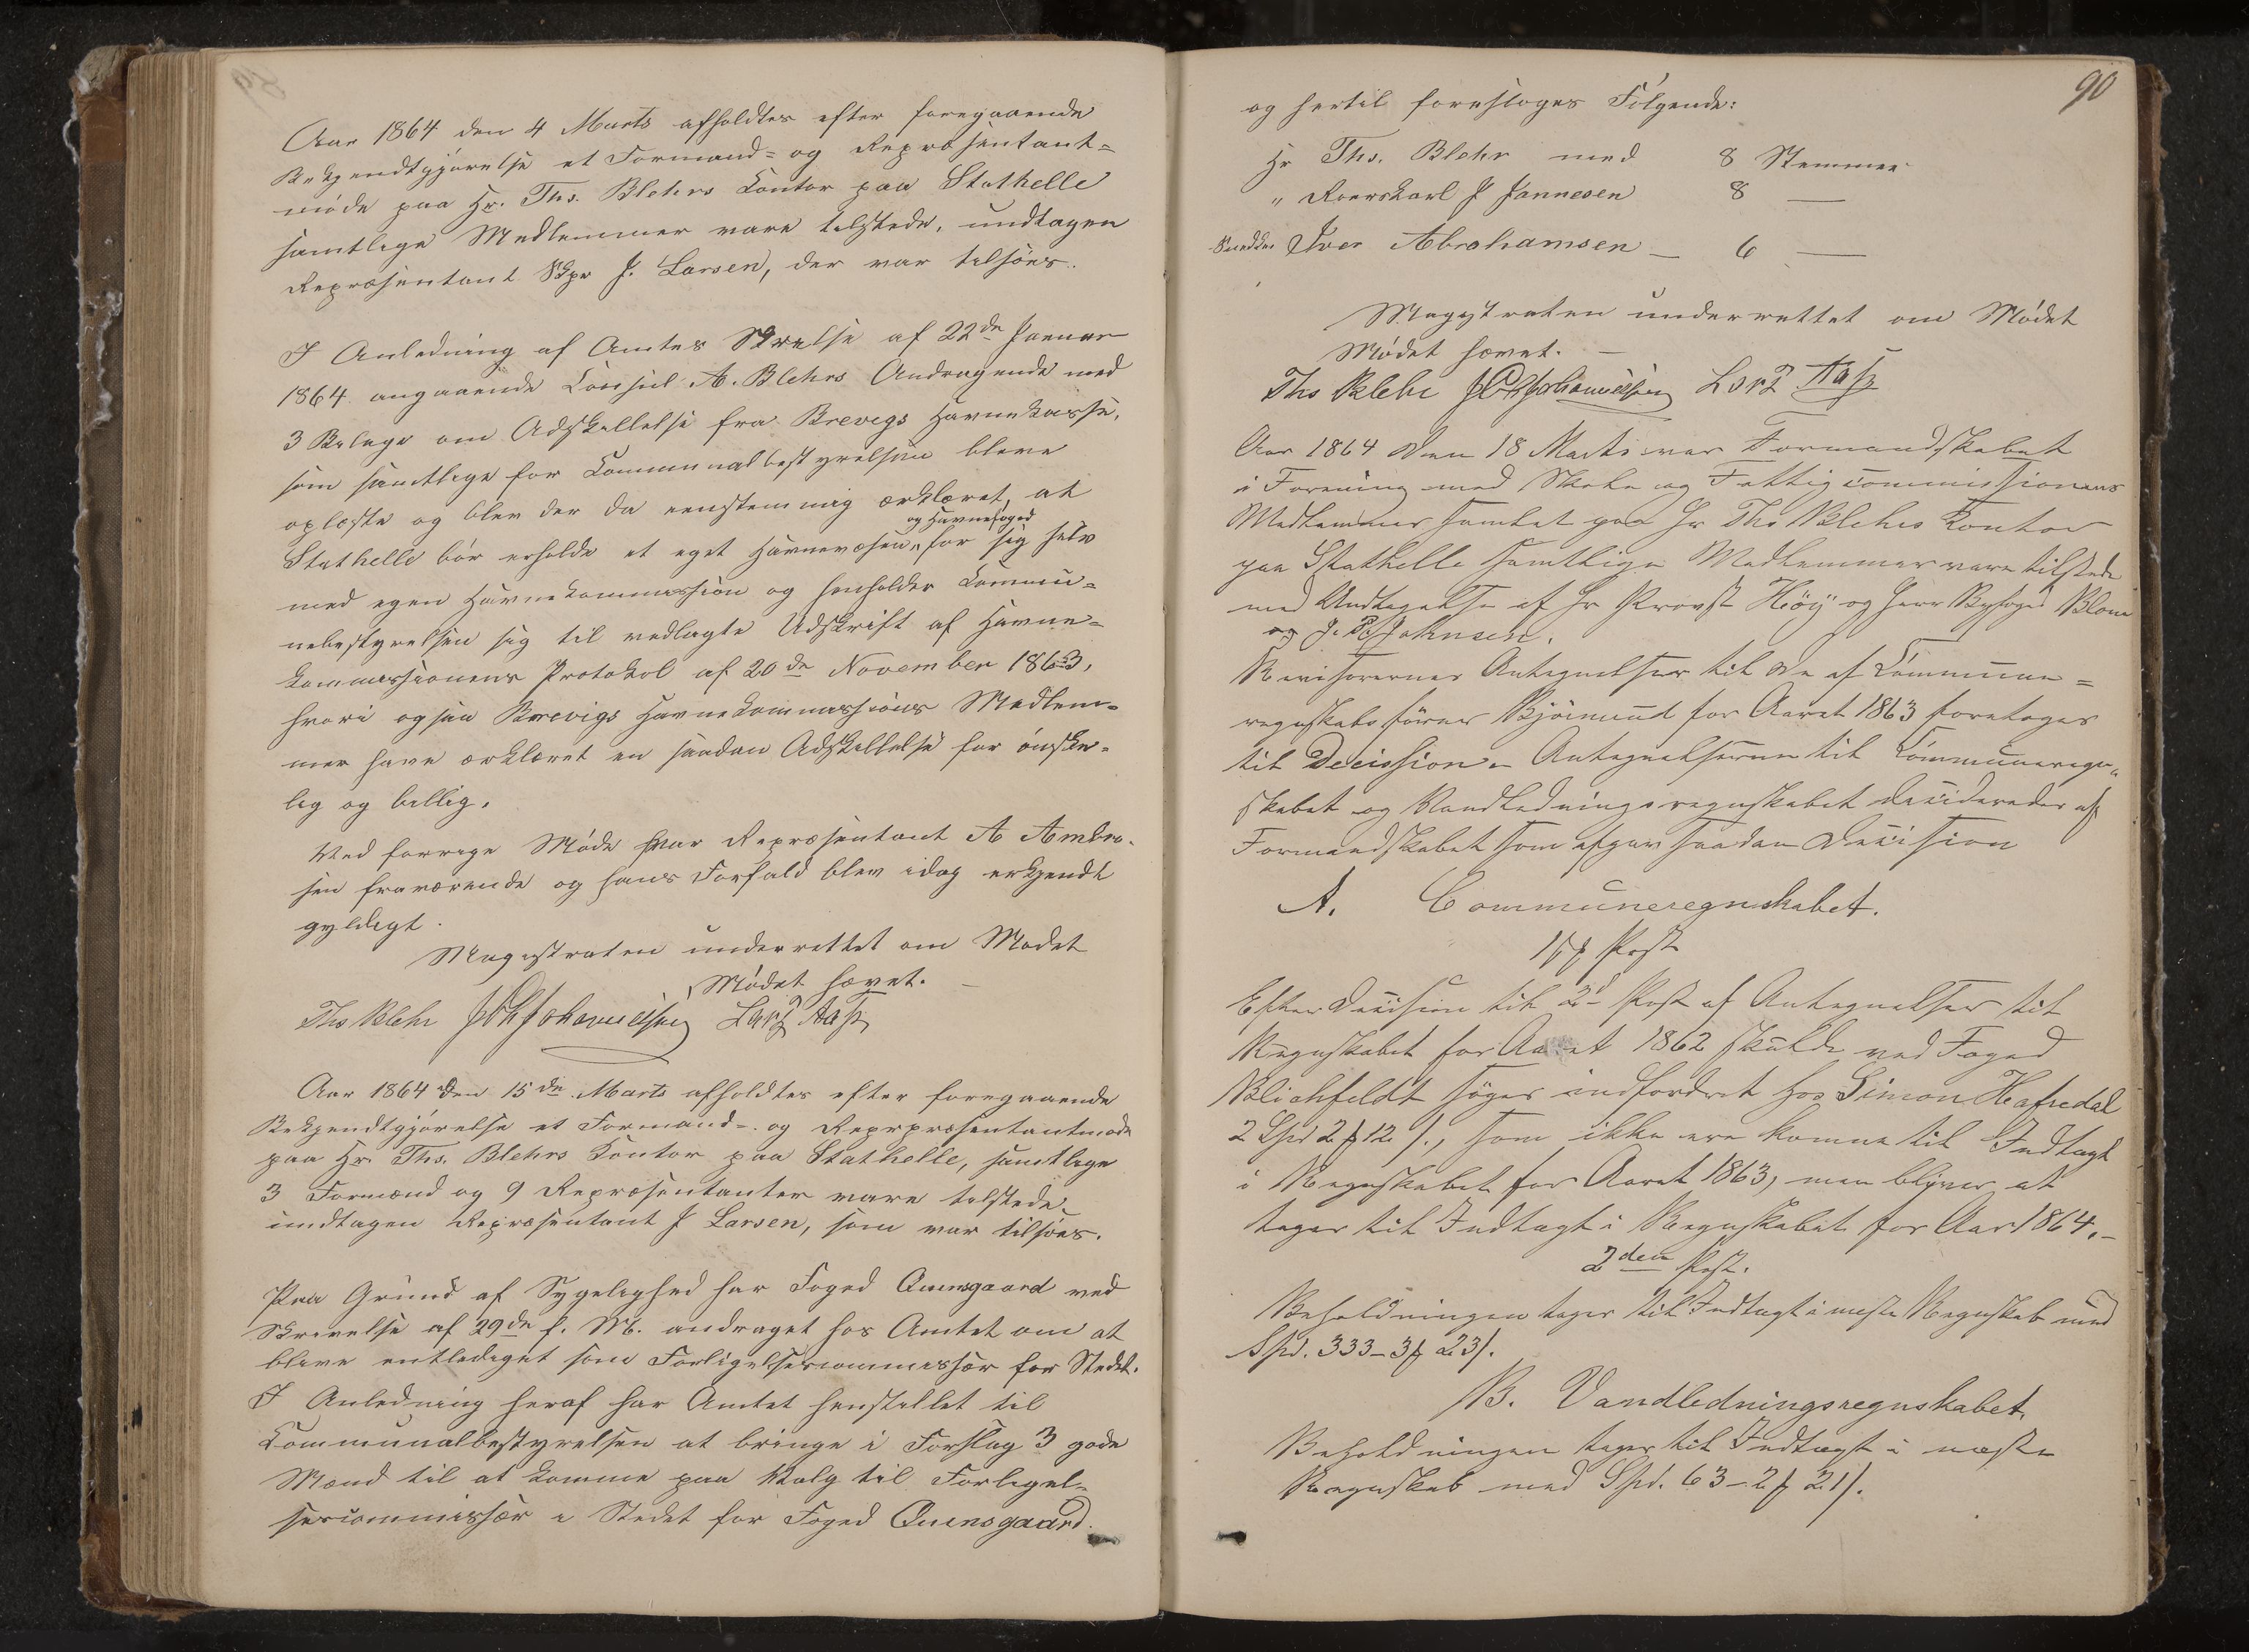 Aar 1864 den 4 Marts afholdtes efter foregaaende
Bekjendtgjørelse et Formand- og Repræsentant-
møde paa Hr. Ths. Blehrs Contor paa Stathelle
samtlige Medlemmer vare tilstede, undtagen
Repræsentant Skpr J. Larsen, der var tilsøes.
I Anledning af Amtes Skrivelse af 22de Januar
1864 angaaende Consul A. Blehrs Andragende med
3 Bilage om Adskillelse fra Brevigs Havnekasse,
som samtlige for Communalbestyrelsen bleve
oplæste og blev der da eenstemmig erklæret, at
og Havnefoged
Stathelle bør erholde et eget Havnevæsen, for sig selv
med egen Havnekommission og henholder Commu-
nebestyrelsen sig til vedlagte Udskrift af Havne-
kommissionens Protokol af 20de November 1863,
hvori ogsaa Brevigs Havnekommissions Medlem-
mer have erklæret en saadan Adskillelse for ønske-
lig og billig.
Ved forrige Møde var Repræsentant A Ambro-
sen fraværende og hans Forfald blev idag erkjendt
gyldigt.
Magistraten underrettet om Mødet
Mødet hævet.
Ths Blehr Lars Aas
Aar 1864 den 15de Marts afholdtes efter foregaaende
Bekjendtgjørelse et Formand- og Reprpræsentantmøde
paa Hr. Ths. Blehrs Contor paa Stathelle, samtlige
3 Formænd og 9 Repræsentanter vare tilstede,
undtagen Repræsentant J Larsen, som var tilsøes.
Paa Grund af Sygelighed har Foged Quensgaard ved
Skrivelse af 29de f. M. andraget hos Amtet om at
blive entlediget som Forligelsescommissær for Stedet.
I Anledning heraf har Amtet henstillet til
Communalbestyrelsen at bringe i Forslag 3 gode
Mænd til at komme paa Valg til Forligel-
sescommissær i Stedet for Foged Quensgaard.
90
og hertil foresloges Følgende:
Hr Ths. Blehr med 8 Stemmer
" Roerskarl J Jannesen 8 —
Snedker Iver Abrahamsen — 6 —
Magistraten underrettet om Mødet
Mødet hævet. —
Ths Blehr Lars Aas
Aar 1864 den 18 Marts var Formandskabet
i Forening med Skole og Fattigcommissionens
Medlemmer samlet paa Hr Ths Blehrs Kontor
paa Stathelle samtlige Medlemmer vare tilstede
med Undtagelse af Hr Provst Höy og Herr Byfoged Blom
og J. P. Johnsen.
Revisorernes Antegnelser til de af Commune-
regnskabsfører Bjørnund for Aaret 1863 foretoges
til Decission. Antegnelserne til Communeregn-
skabet og Vandledningsregnskabet decideredes af
Formandskabet som afgav saadan Decision
A. Communeregnskabet.
1ste Post
Efter Decision til 2d Post af Antegnelser til
Regnskabet for Aaret 1862 skulde ved Foged
Blichfeldt søges indfordret hos Simon Hafredal
2 Spd 2 ₰ 12 /., som ikke ere komne til Indtægt
i Regnskabet for Aaret 1863, men bliver at
tages til Indtægt i Regnskabet for Aar 1864.–
2den Post.
Beholdningen tages til Indtægt i næste Regnskab med
Spd. 333–3 ₰ 23/.
B. Vandledningsregnskabet.
Beholdningen tages til Indtægt i næste
Regnskab med Spd. 63–2 ₰ 21/.